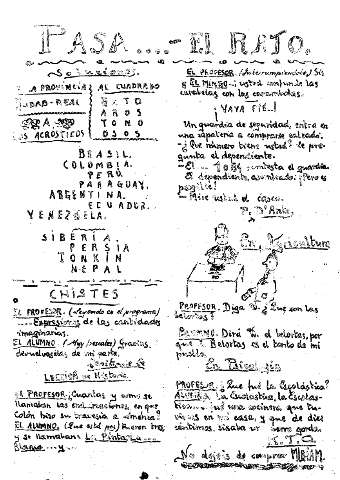 PASA....-EL RATO.
Soluciones.
A LA PROVINCIA
CIUDAD-REAL
A
LOS ACROSTICOS
AL CUADRADO
AROS
TONO
OSOS
BRASIL.
COLOMBIA.
PERÚ.
PARAGUAY.
ARGENTINA.
ECUADOR.
VENEZUELA.
SIBERIA.
PERSIA
TONKIN
NEPAL
CHISTES
EL PROFESOR. (Leyendo en el programa)
....Expresiones de las cantidades
imaginarias.
EL ALUMNO. (Muy) Gracias,
devuelvaselas de mi parte.
LECCIÓN de Historia.
EL PROFESOR ¿Cuantas y como se
llamaban las embarcaciones, en que
Colón hizo su travesia a America?
EL ALUMNO. (Que está pez) Fueron tres
y se llamaban: La Pinta, La....
Blanca ....y....
EL PROFESOR. (Interrumpiendole) Si
EL MISMO- si usted confunde las
carabelas con las
¡VAYA PIE..!
Un guardia de seguridad, entra en
una zapateria a comprarse calzado.
-¿Que número tiene usted? le pre-
gunta el dependiente.
-El contesta el guardia.
El dependiente, asombrado: ¿Pero es
posible?
-Mire usted el casco.
En
PROFESOR. Diga V. ¿Que son las
belortas?
ALUMNO. Dirá V. el belortas, por
que Belortas es el tonto de mi
pueblo.
En
PROFESOR- ¿Que fué la Escolástica?
ALUMNO. La Escolastica, la Escolas-
tica... fué una cocinera, que tu-
vimos en mi casa, y que de diez
céntimos, sisaba un perro gordo.
No dejeis de comprar MIRIAM.